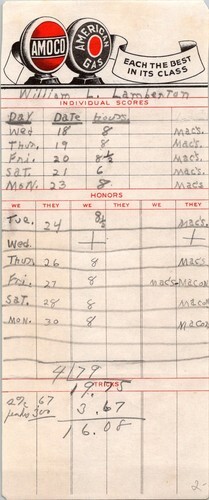 AMOCO
AMERICAN GAS
EACH THE BEST
IN ITS CLASS
William L. Lamberton
INDIVIDUAL SCORES
Day Date hours
Wed 18 8 Mac's.
Thur. 19 8 Mac's.
Fri. 20 8 1/2 Mac's.
Sat. 21 6 Mac's.
Mon. 23 8 Mac's
HONORS
WE THEY WE THEY WE THEY
Tue. 24 8 1/2 Mac's.
Wed.
Thur. 26 8 Mac's
Fri. 27 8 Mac's-Macon
Sat. 28 8 Macon
Mon. 30 8 Macon
4/79
TRICKS
19.75
.67
3.00
3.67
16.08
2-